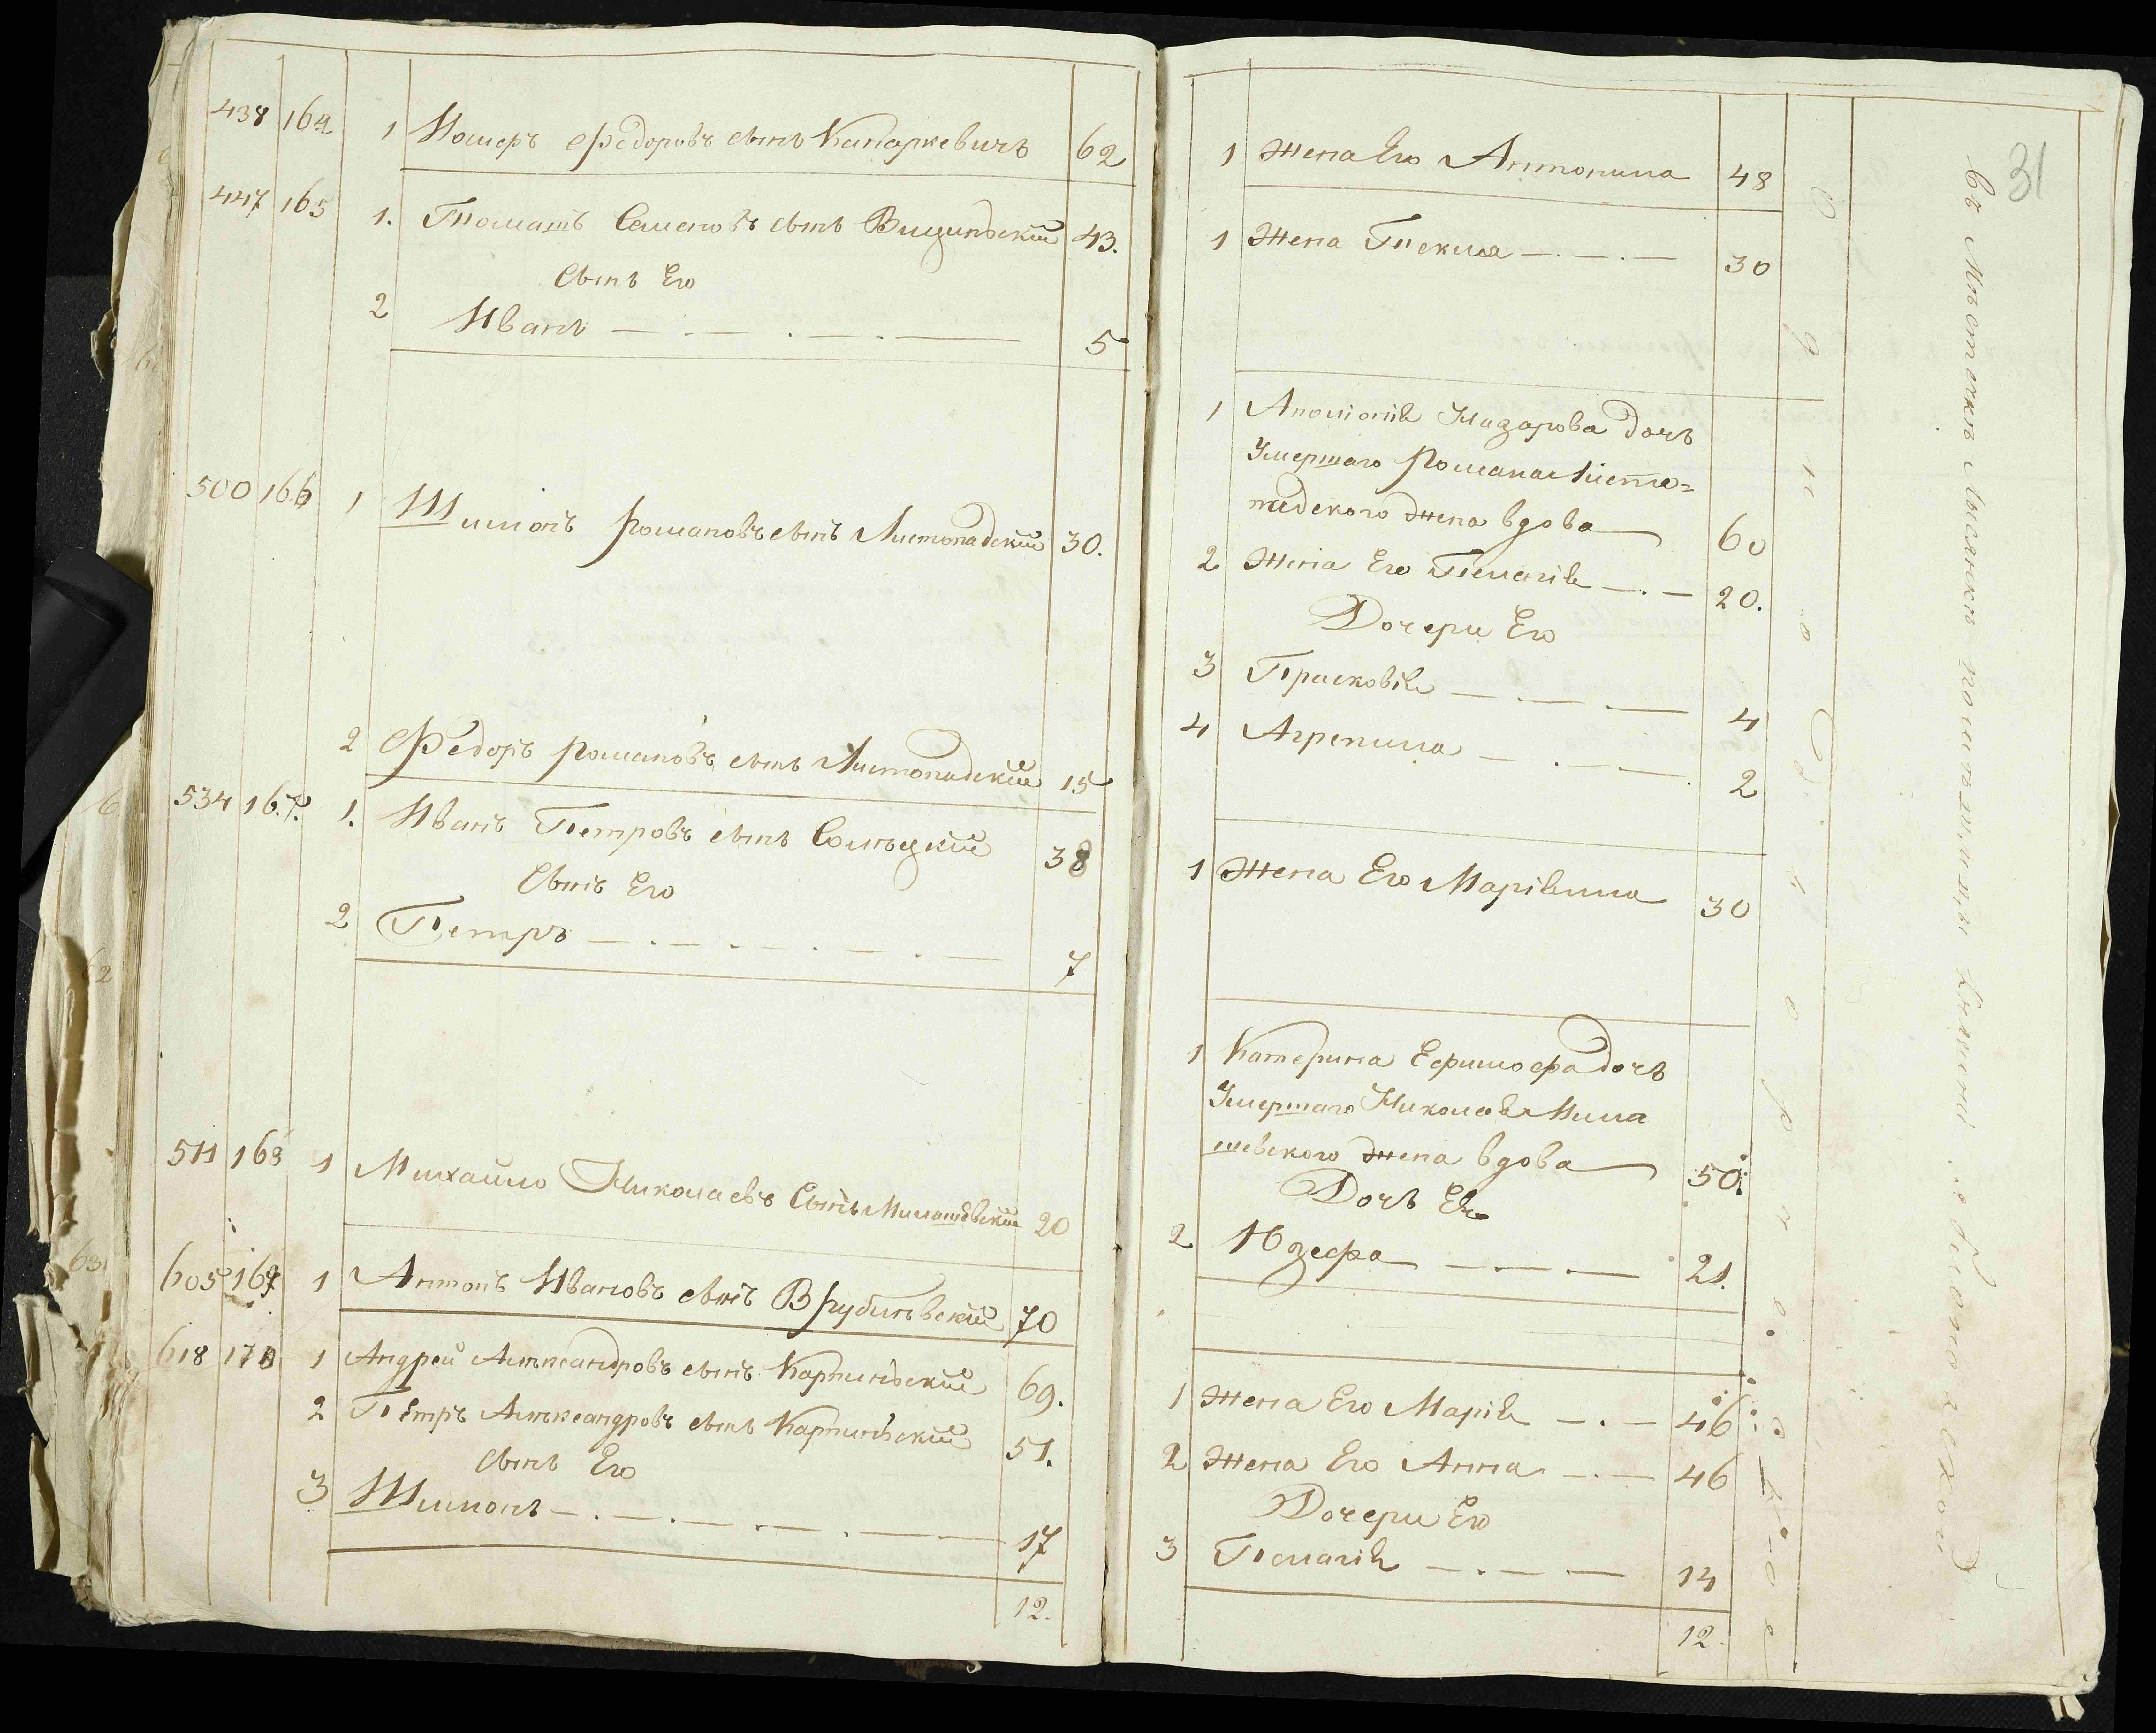 438 164 1 Номеръ Федоровъ сынъ Качаркевичъ 62
447 165 1. Томашъ Семеновъ сынъ Вищинъский 43.
Сынъ Его
2 Иванъ 5
500 166 1 Шимонъ Романовъ сынъ Листопадский 30.
2 Федоръ Романовъ сынъ Листопадский 15
534 167. 1. Иванъ Петровъ сынъ Солнъцкий 38
Сынъ Его
2 Петръ 7
511 168 1 Михайло Николаевъ Сынъ Милашевский 20
605 169 1 Антонъ Ивановъ сынъ Врублевский 70
618 170 1 Андрей Алѣксандровъ сынъ Карпинъский 69.
2 Пѣтръ Алѣксандровъ сынъ Карпинъский 51.
сынъ Его
3 Шимонъ 17
12.
31
1 Жена Его Антонина 48
1 Жена Текля 30
1 Аполонія Назарова дочь
Умершаго Романа Листо=
падского жена вдова 60
2 Жена Его Пелагія 20.
Дочери Его
3 Прасковія 4
4 Агрепина 2
1 Жена Его Маріянна 30
1 Катерина Есримоера дочь
Умершаго Николая Мила
шевского жена вдова 50.
Дочь Ея
2 Юзефа 21.
1 Жена Его Марія 46
2 Жена Его Анна 46
Дочери Его
3 Пелагія 14
12.
въ Мѣстечкѣ Лысянкѣ